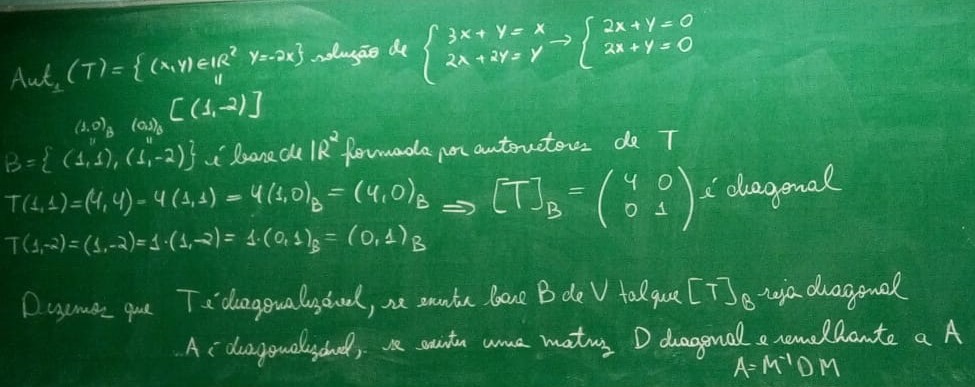 Aut₁(T) = { (x,y) ∈ IR² y=-2x} solução de { 3x + y = x → { 2x + y = 0
2x + 2y = y 2x + y = 0
||
[(1,-2)]
(1,0)_B (0,1)_B
|| ||
B = { (1,1), (1,-2)} é base de IR² formada por autovetores de T
T(1,1) = (4,4) = 4(1,1) = 4(1,0)_B = (4,0)_B ⇒ [T]_B = ( 4 0 ) é diagonal
0 1
T(1,-2) = (1,-2) = 1·(1,-2) = 1·(0,1)_B = (0,1)_B
Dizemos que T é diagonalizável, se existir base B de V tal que [T]_B seja diagonal
A é diagonalizável, se existir uma matriz D diagonal e semelhante a A
A = M⁻¹DM